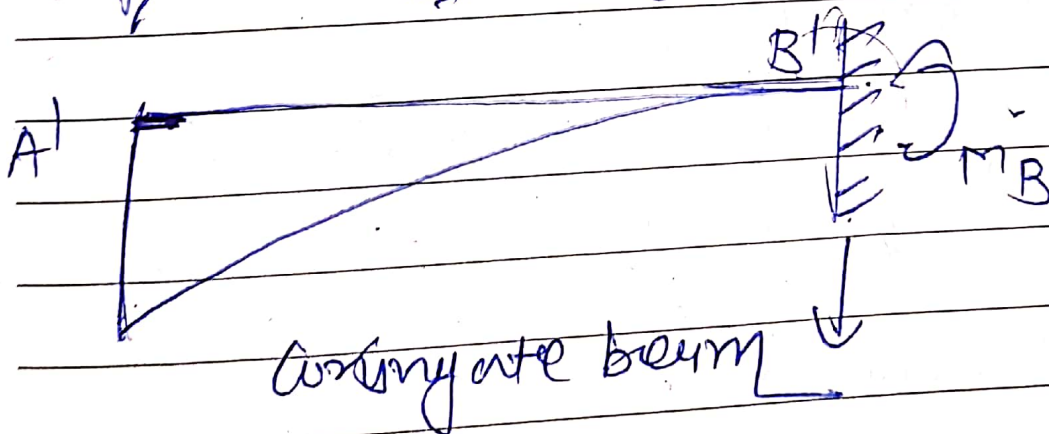 B'
A'
M'B
Conjugate beam